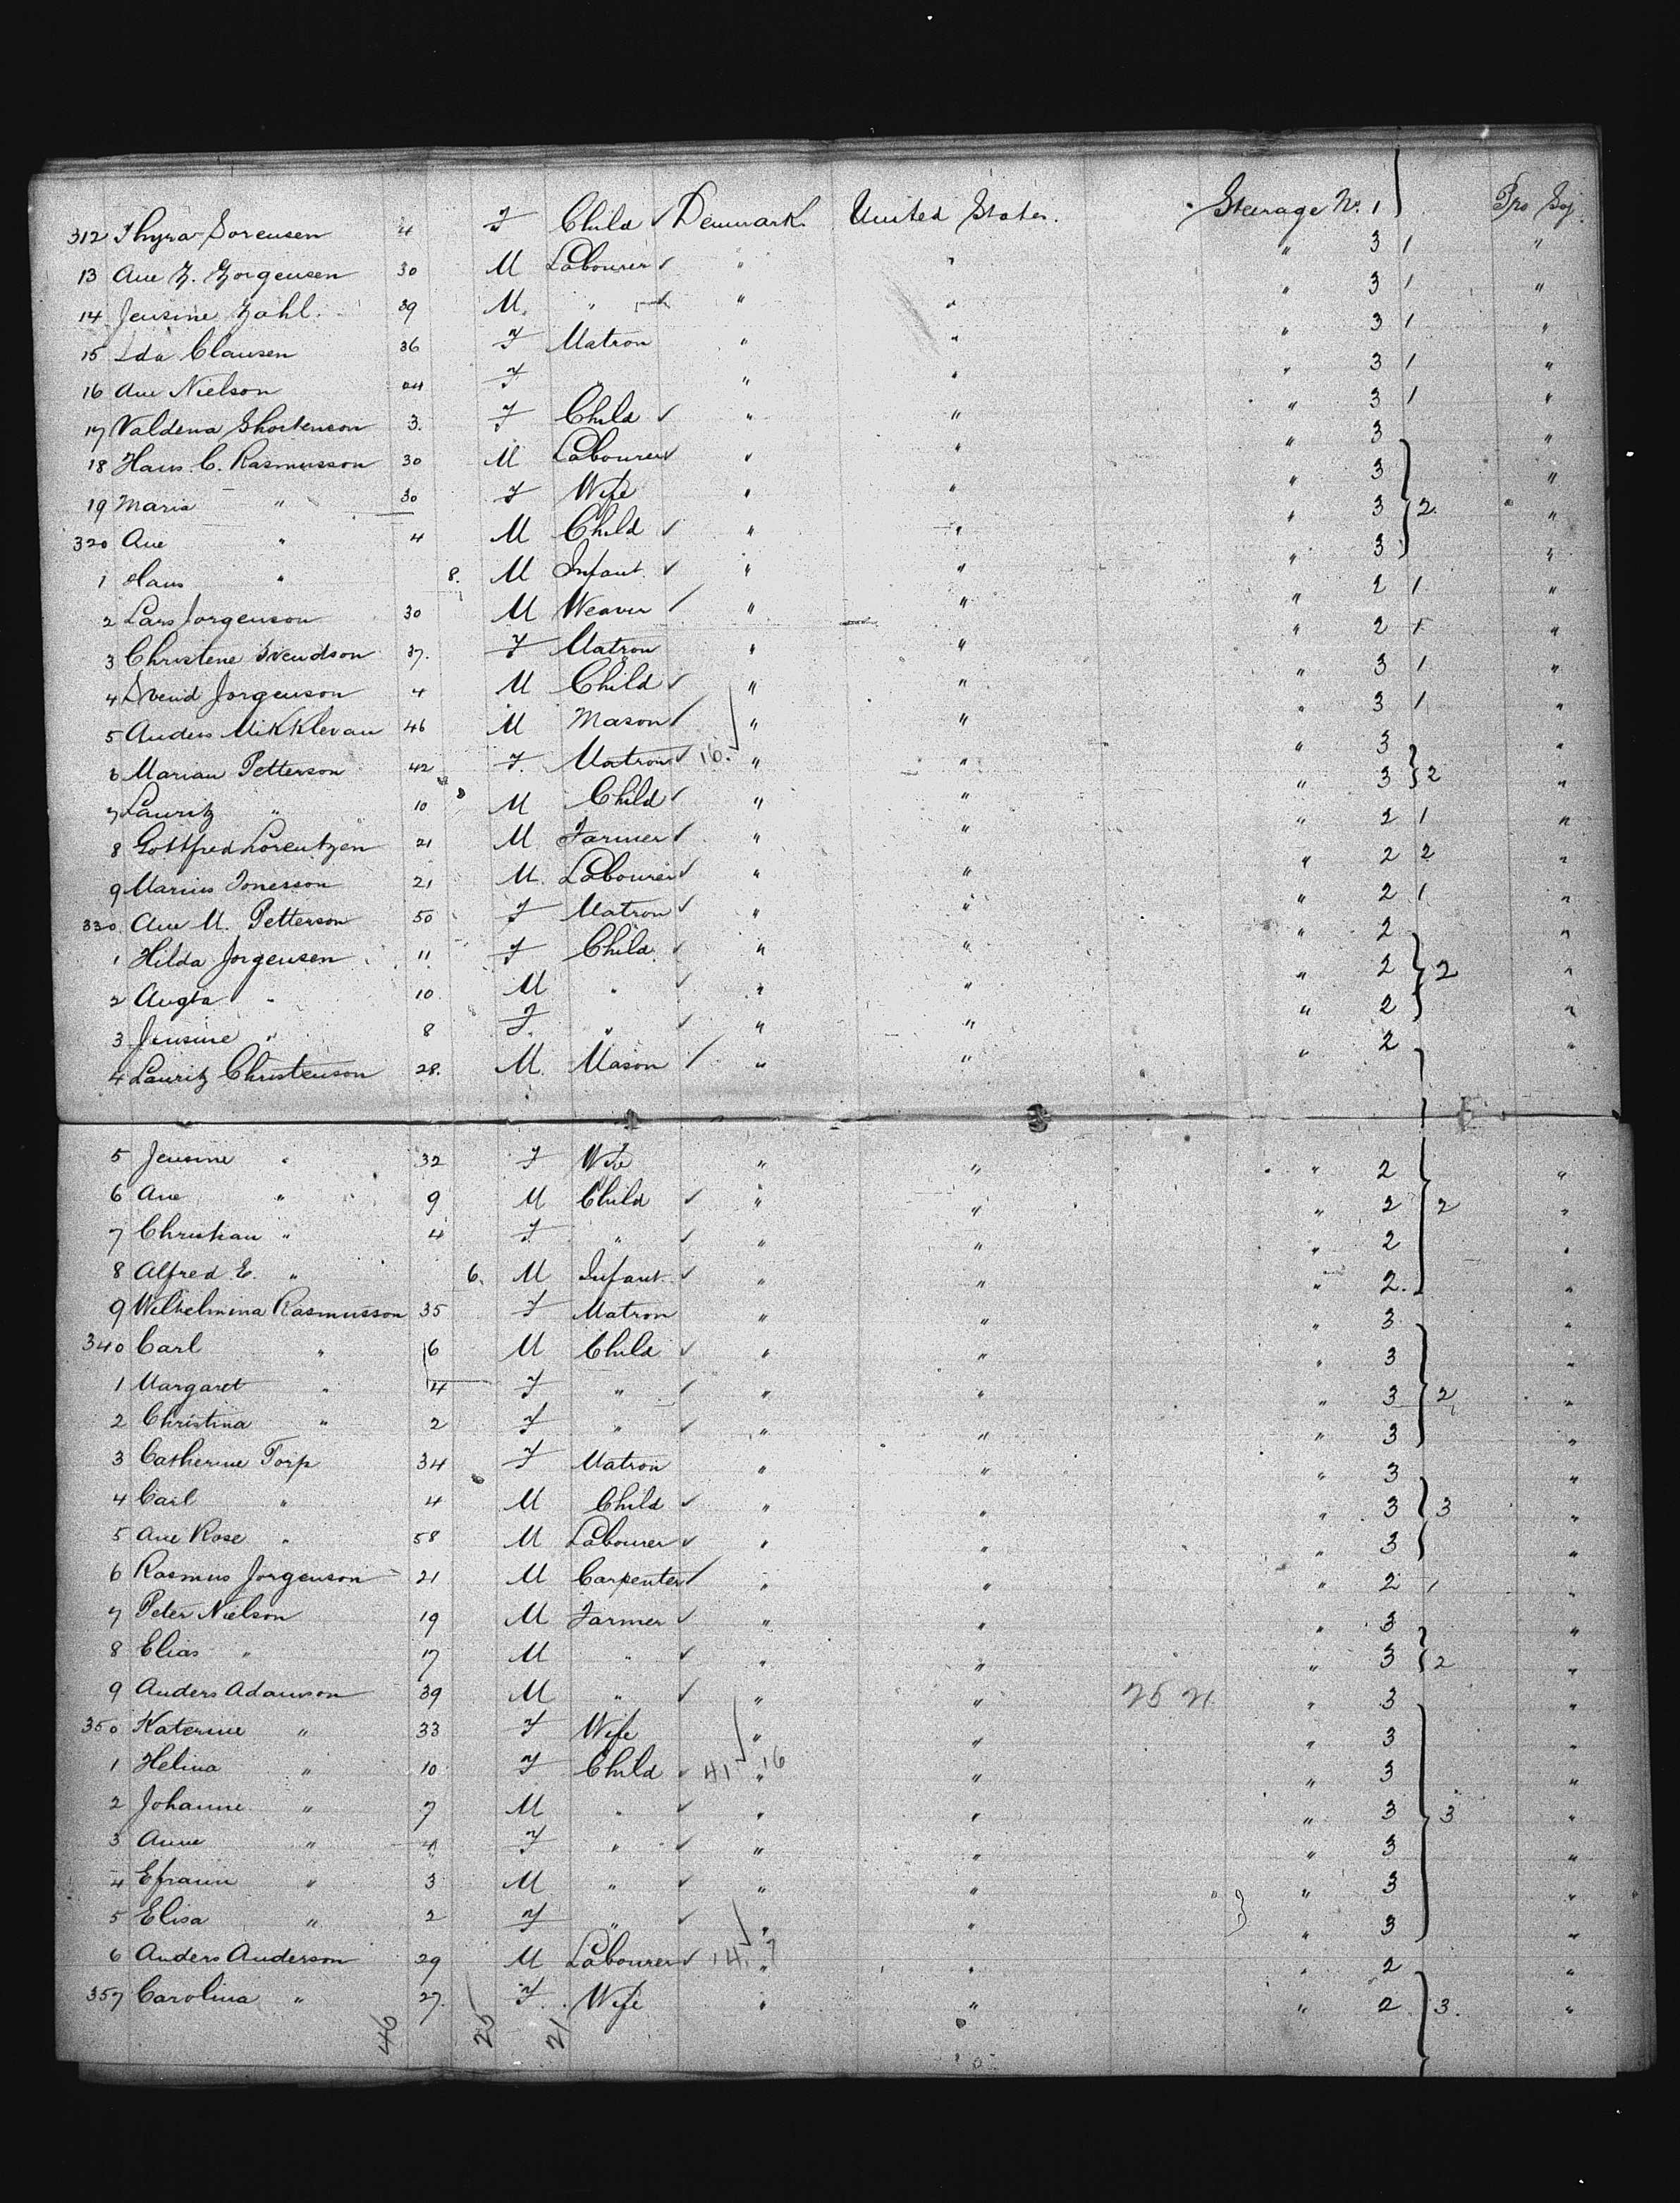 312 Thyra Sorensen 4 F Child ✓ Denmark United States. Steerage No. 1 Pro Soj.
13 Ane Z. Zorgensen 30 M Labourer ✓ " " " 3 1 "
14 Jensine Zahl. 39 M. " ✓ " " " 3 1 "
15 Ida Clausen 36 F Matron " " " 3 1 "
16 Ane Nielson 24 F " " " " 3 1 "
17 Valdena Thortenson 3. F Child ✓ " " " 3 1 "
18 Hans. C. Rasmusson 30 M Labourer ✓ " " " 3 "
19 Maria " 30 F Wife " " " 3 "
320 Ane " 4 M Child ✓ " " " 3 2. "
1 Hans " 8. M Infant. ✓ " " " 3 "
2 Lars Jorgenson 30 M Weaver / " " " 2 1 "
3 Christene Svendson 37. F Matron " " " 2 1 "
4 Svend Jorgenson 4 M Child ✓ " " " 3 1 "
5 Anders Mikklevan 46 M Mason / " " " 3 1 "
6 Marian Petterson 42 F. Matron ✓ 16. " " " 3 "
7 Lauritz " 10 M Child ✓ " " " 3 2 "
8 Gottfred Lorentzen 21 M Farmer / " " " 2 1 "
9 Marius Jonesson 21 M. Labourer ✓ " " " 2 2 "
330. Ane M. Petterson 50 F Matron ✓ " " " 2 1 "
1 Hilda Jorgensen 11 F Child. ✓ " " " 2 "
2 Augta " 10. M " ✓ " " " 2 2 "
3 Jensine " 8 F. " ✓ " " " 2 "
4 Lauritz Christenson 28. M. Mason / " " " 2 "
5 Jensine " 32 F Wife " " " 2 "
6 Ane " 9 M Child ✓ " " " 2 2 "
7 Christian " 4 F " ✓ " " " 2 "
8 Alfred E. " 6. M Infant. ✓ " " " 2. "
9 Wilhelmina Rasmusson 35 F Matron " " " 3 "
340 Carl " 6 M Child ✓ " " " 3 "
1 Margaret " 4 F " ✓ " " " 3 2 "
2 Christina " 2 F " ✓ " " " 3 "
3 Catherine Torp 34 F Matron " " " 3 "
4 Carl " 4 M Child ✓ " " " 3 3 "
5 Ane Rose " 58 M Labourer ✓ " " " 3 "
6 Rasmus Jorgenson 21 M Carpenter / " " " 2 1 "
7 Peter Nielson 19 M Farmer ✓ " " " 3 "
8 Elias " 17 M " ✓ " " " 3 2 "
9 Anders Adamson 39 M " ✓ " " 25 21 " 3 "
350 Katerine " 33 F Wife " " " 3 "
1 Helina " 10 F Child ✓ 41 " 16 " " 3 "
2 Johanne " 7 M " ✓ " " " 3 3 "
3 Anne " 4 F " ✓ " " " 3 "
4 Efraim " 3 M " ✓ " " " 3 "
5 Elisa " 2 F " ✓ " " " 3 "
6 Anders Anderson 29 M Labourer ✓ 14. 7 " " " 2 "
357 Carolina " 27. F. Wife " " " 2 3. "
46 25 21